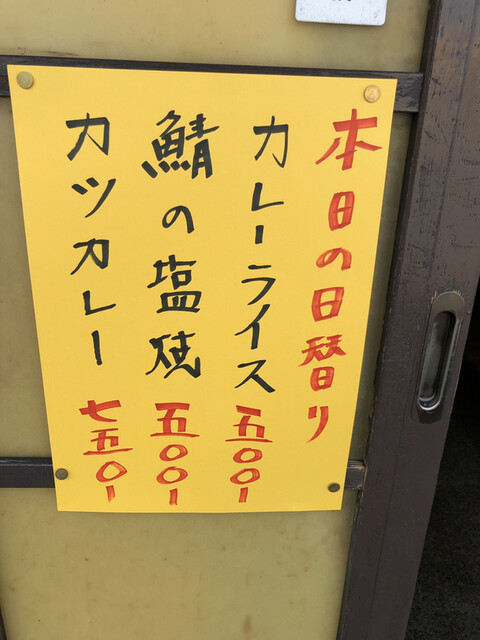 本日の日替り
カレーライス 五〇〇ー
鯖の塩焼 五〇〇ー
カツカレー 七五〇ー